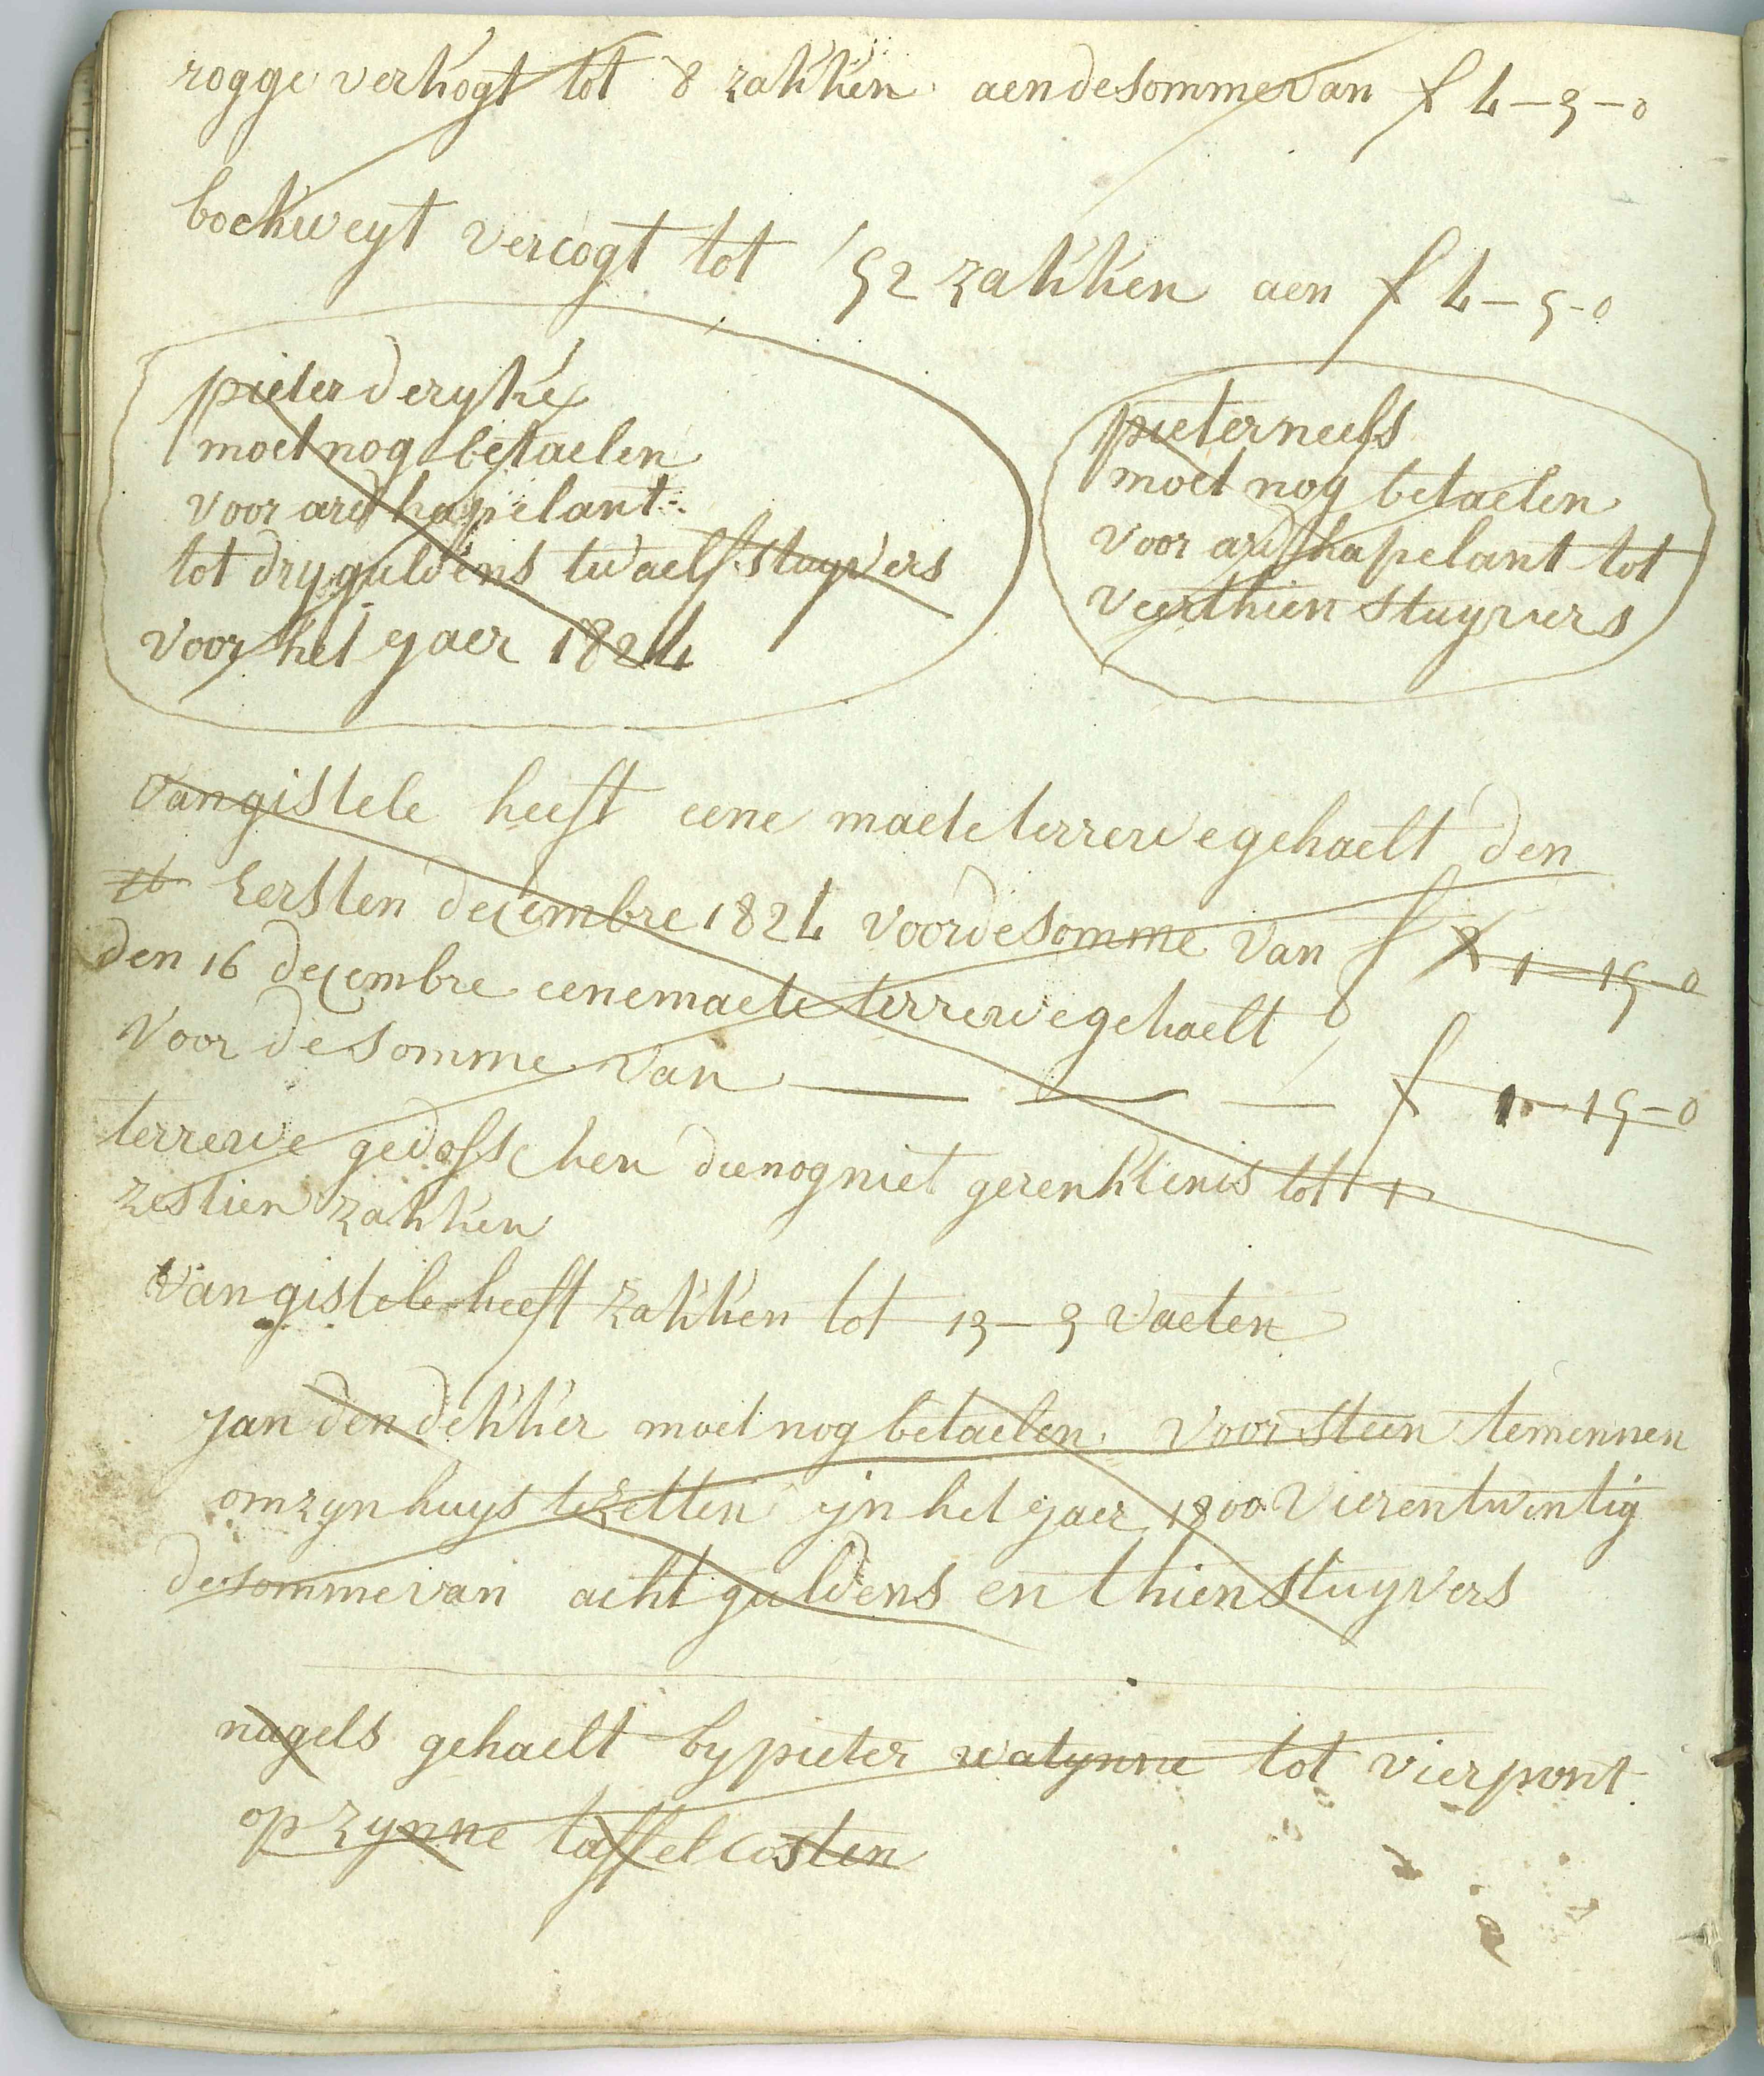 rogge verkogt tot 8 zakken aendesommevan f 4-3-0
boekweyt vercogt tot 52 zakken aen f 4-5-0
pieter deryke
moet nog betaelen
voor ard kapelant
tot dry guldens twaelf stuyvers
voor het yaer 1824
pieter neefs
moet nog betaelen
voor ard kapelant tot
veerthien stuyvers
vangistele heeft eene maete terrewe gehaelt den
eersten decembre 1824 voordesomme van f 1-15-0
den 16 decembre eenemaete terrewe gehaelt
voor de somme van — — — f 1-15-0
terrewe gedosschen die nog niet gerenktenis tot
zestien zakken
van gistele heeft zakken tot 13-3 vaeten
jan den dekker moet nog betaelen voor steen temennen
omzyn huys te zetten yn het yaer 1800 vierentwintig
desommevan acht guldens en thien stuyvers
nagels gehaelt by pieter watynne tot vier pont
op zynne taffelcosten